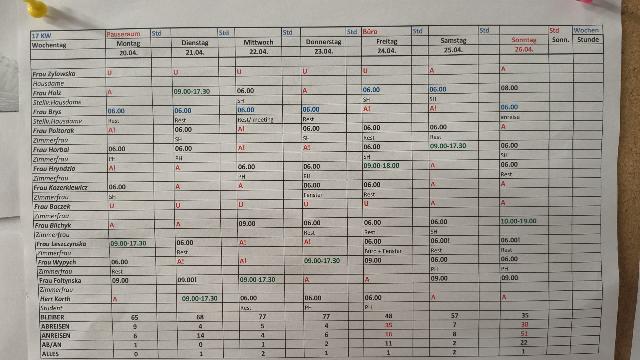 17 KW Pauseraum Std Std Std Std Büro Std Std Std Wochen
Wochentag Montag Dienstag Mittwoch Donnerstag Freitag Samstag Sonntag Sonn. Stunde
20.04. 21.04. 22.04. 23.04. 24.04. 25.04. 26.04.
Frau Zylowska U U U U U A A
Hausdame
Frau Holz A 09.00-17.30 06.00 A 06.00 06.00 08.00
Stellv.Hausdame SH SH SH
Frau Brys 06.00 06.00 06.00 06.00 A! A! 06.00
Stellv.Hausdame Rest Rest Rest/ meeting Rest
Frau Poltorak A! 06.00 A! 06.00 06.00 06.00 A
Zimmerfrau SH SH Rest Rest
Frau Horbal 06.00 06.00 A! A! 06.00 09.00-17.30 06.00
Zimmerfrau PH PH SH SH
Frau Hryndzio A! A 06.00 06.00 09.00-18.00 A 06.00
Zimmerfrau PH PH Rest
Frau Kazerkiewicz 06.00 A A 06.00 A A A
Zimmerfrau SH Fenster
Frau Baczek U U U U U A A
Zimmerfrau
Frau Blichyk A A 09.00 06.00 06.00 06.00 10.00-19.00
Zimmerfrau Rest Rest SH
Frau Leszczynska 09.00-17.30 06.00 A! A! 06.00 06.00! 06.00!
Zimmerfrau Rest Büro + Fenster Rest Rest
Frau Wypych 06.00 A! A! 09.00-17.30 09.00 06.00 06.00
Zimmerfrau Rest PH PH
Frau Foltynska 09.00 09.00! 09.00-17.30 A A 09.00 09.00
Zimmerfrau
Herr Korth A 09.00-17.30 06.00 06.00 06.00 A A
Student Rest PH PH
BLEIBER 65 68 77 77 48 57 35
ABREISEN 9 4 5 4 35 7 30
ANREISEN 6 14 4 6 16 8 51
AB/AN 1 0 1 2 11 2 22
ALLES 0 1 2 1 2 1